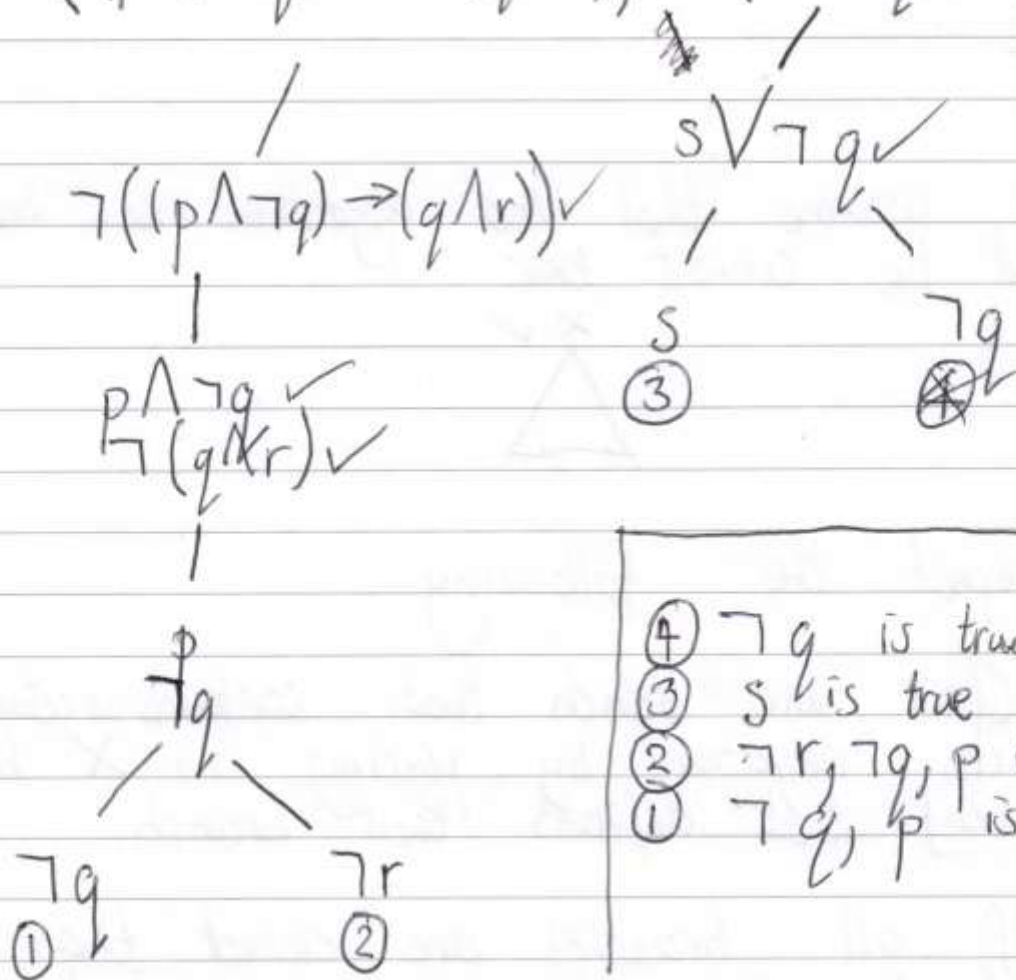 s∨¬q✓
¬((p∧¬q)→(q∧r))✓
s
¬q
③
④
p∧¬q ✓
¬(q∧r)✓
p
¬q
¬q
¬r
①
②
④ ¬q is true
③ s is true
② ¬r, ¬q, p
① ¬q, p is